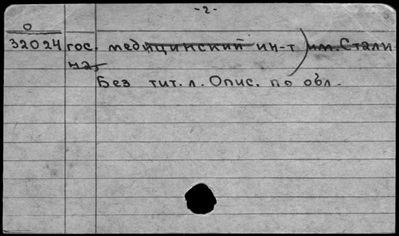 -2-
0
32024 гос. медицинский ин-т) им. Стали
на,
Без тит. л. Опис. по обл.